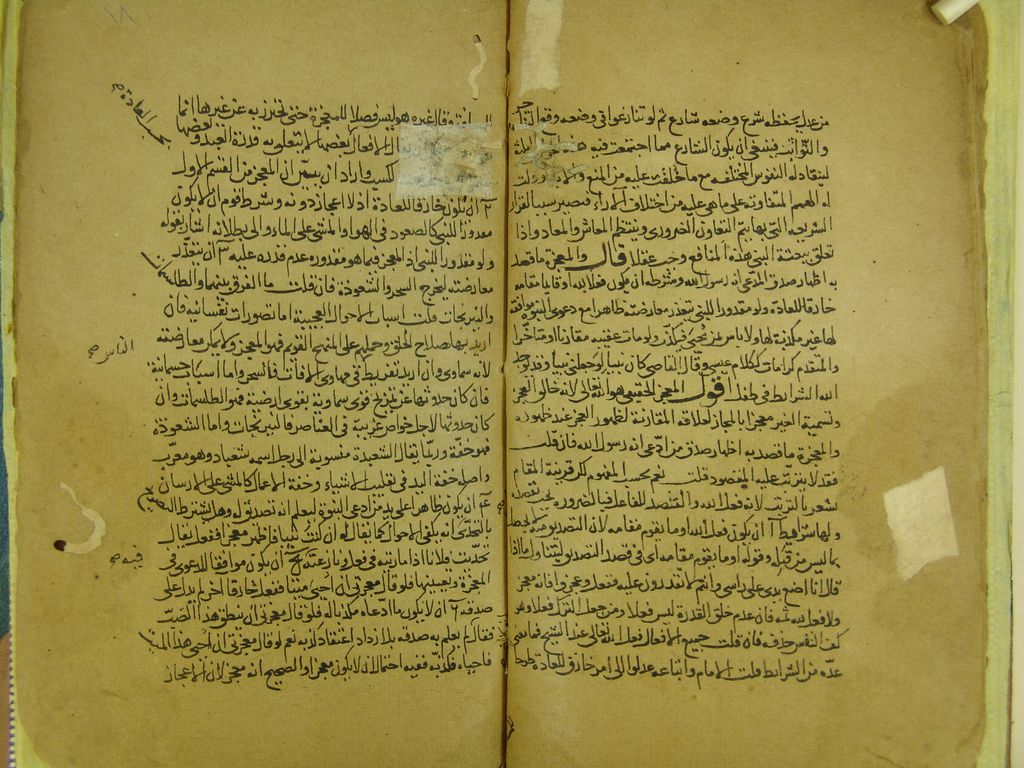 من عدل يحفظه شرع وضعه شارع ثم لو تنازعوا في وضعه وقع
والنوائب فينبغي ان يكون الشارع ممتازا
لينقاد له النفوس المختلفة مع ما خلقت عليه من
الهمم المتفاوتة على ما هي عليه من اختلاف الآراء فيصير سببا لقرار
الشريعة التي بها يتم التعاون الضروري وينتظم المعاش والمعاد واذا
تعلق ببعثة النبي هذه المنافع وجب عقلا قال والمعجزة ما قصد
به اظهار صدق المدعي انه رسول الله وشرطه ان يكون فعلا لله او قايما مقامه
خارقا للعادة ولو مقدورا للنبي يتعذر معارضته ظاهرا مع دعوى النبوة موافقة
لها غير مكذبة لها ولا يضر من يحيى فيكذب ولو مات عقيبه مقارنا او متأخرا
والمتقدم كرامات ككلام عيسى وقال القاضي كان نبيا لوجعلني نبيا وقد
الله الشرائط في طفل اقول المعجز الحقيقي هو الله تعالى لانه خالق العجز
وتسمية الخبر معجزا بالمجاز لعلاقة المقارنة لظهور العجز عند ظهوره
والمعجزة ما قصد به اظهار صدق من ادعى انه رسول الله فان قلت
فقد لا يترتب عليه المقصود قلت نعم بحسب المفهوم لكن قرينة المقام
تشعر بالترتب لانه فعل الله والقصد للفاعل فبالضرورة
ولها شرائط آ ان يكون فعل الله او ما يقوم مقامه لان التصديق منه
بما ليس من قبله وقوله او ما يقوم مقامه اي في قصد التصديق ليتناول ما اذا
قال انا اضع يدي على رأسي وانتم لا تقدرون عليه ففعل وعجزوا فانه معجز
ولا فعل لله ثمه فان عدم خلق القدرة ليس فعلا ومن جعل الترك فعلا وهو
كف النفس حذفه فان قلت جميع الافعال فعل الله تعالى عند الشيخ فما معنى
عده من الشرائط قلت الامام واتباعه عدلوا الى امر خارق للعادة
وقال غيره هو ليس فصلا للمعجزة حتى يحترز به عن غيرها انما
الافعال بعضها لا يتعلق به قدرة العبد وبعضها
كسب واراد ان يبين ان المعجز من القسم الاول
ان يكون خارقا للعادة اذ لا اعجاز دونه وشرط قوم ان لا يكون
مقدورا للنبي كالصعود في الهواء والمشي على الماء والى بطلانه اشار بقوله
ولو مقدورا للنبي اذ المعجز فيما هو مقدوره عدم قدرة غيره عليه ٣ ان يتعذر
معارضته ليخرج السحر والشعوذة فان قلت ما الفرق بينهما والطلسمات
والنيرنجات قلت اسباب الاحوال العجيبة اما تصورات نفسانية فان
اريد بها صلاح الخلق وحملهم على المنهج القويم فهو المعجز ولا يمكن معارضته
لانه سماوي وان اريد تفريط في مهاوي الآفات فالسحر واما اسباب جسمانية
فان كان حدوثها عن تمزيج قوى سماوية بقوى ارضية فهو الطلسمات وان
كان حدوثها لاجل خواص غريبة في العناصر فالنيرنجات واما الشعوذة
فهو خفة وربما يقال الشعبذة منسوبة الى رجل اسمه شعباد وهو معرب
واصله خفة اليد في تقليب الاشياء وخفة الاعمال كالمشي على الارسان
ع ان يكون ظاهرا على يد من ادعى النبوة ليعلم انه تصديق له وهل يشترط
بالتحدي انه يكفي الاحوال كما يقال له ان كنت نبيا فاظهر معجزا ففعل يقال
تحديت فلانا اذا ماريته في فعل ونازعته ٥ ان يكون موافقا للدعوى في
المعجزة وتعيينها فلو قال معجزتي ان احيي ميتا ففعل خارقا آخر لم يدل على
صدقه ٦ ان لا يكون ما ادعاه مكذبا له فلو قال معجزتي ان ينطق هذا الضب
فقال لم يعلم به صدقه بل ازداد اعتقاد كذبه نعم لو قال معجزتي ان احيي هذا الميت
فاحياه فكذبه ففيه احتمال ان لا يكون معجزا والصحيح انه معجز لان الاعجاز
بحسب العادة صح
الناس صح
فيه صح